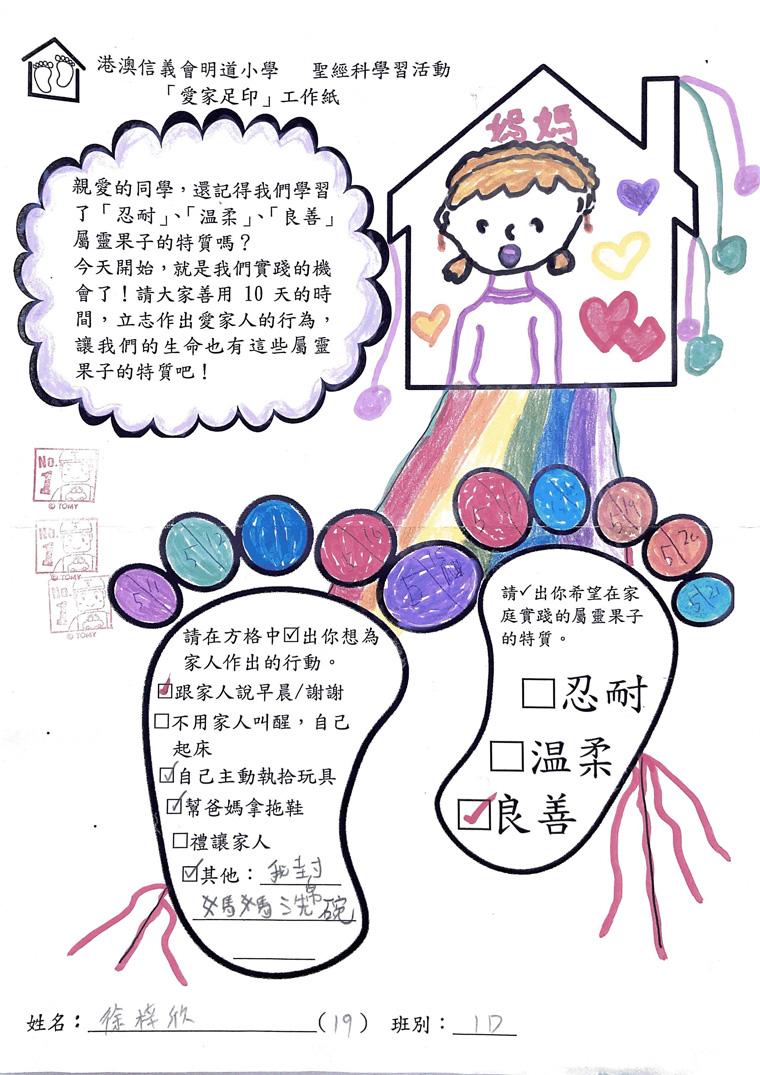 港澳信義會明道小學 聖經科學習活動
「愛家足印」工作紙
媽媽
親愛的同學，還記得我們學習
了「忍耐」、「温柔」、「良善」
屬靈果子的特質嗎？
今天開始，就是我們實踐的機
會了！請大家善用 10 天的時
間，立志作出愛家人的行為，
讓我們的生命也有這些屬靈
果子的特質吧！
No.
1
© TOMY
No.
1
© TOMY
© TOMY
5/12
5/20
5/21
請在方格中☑出你想為
家人作出的行動。
☑跟家人說早晨/謝謝
☐不用家人叫醒，自己
起床
☑自己主動執拾玩具
☑幫爸媽拿拖鞋
☐禮讓家人
☑其他：我封
媽媽洗碗
帛
請✓出你希望在家
庭實踐的屬靈果子
的特質。
☐忍耐
☐温柔
☑良善
姓名：徐梓欣（19） 班別：1D